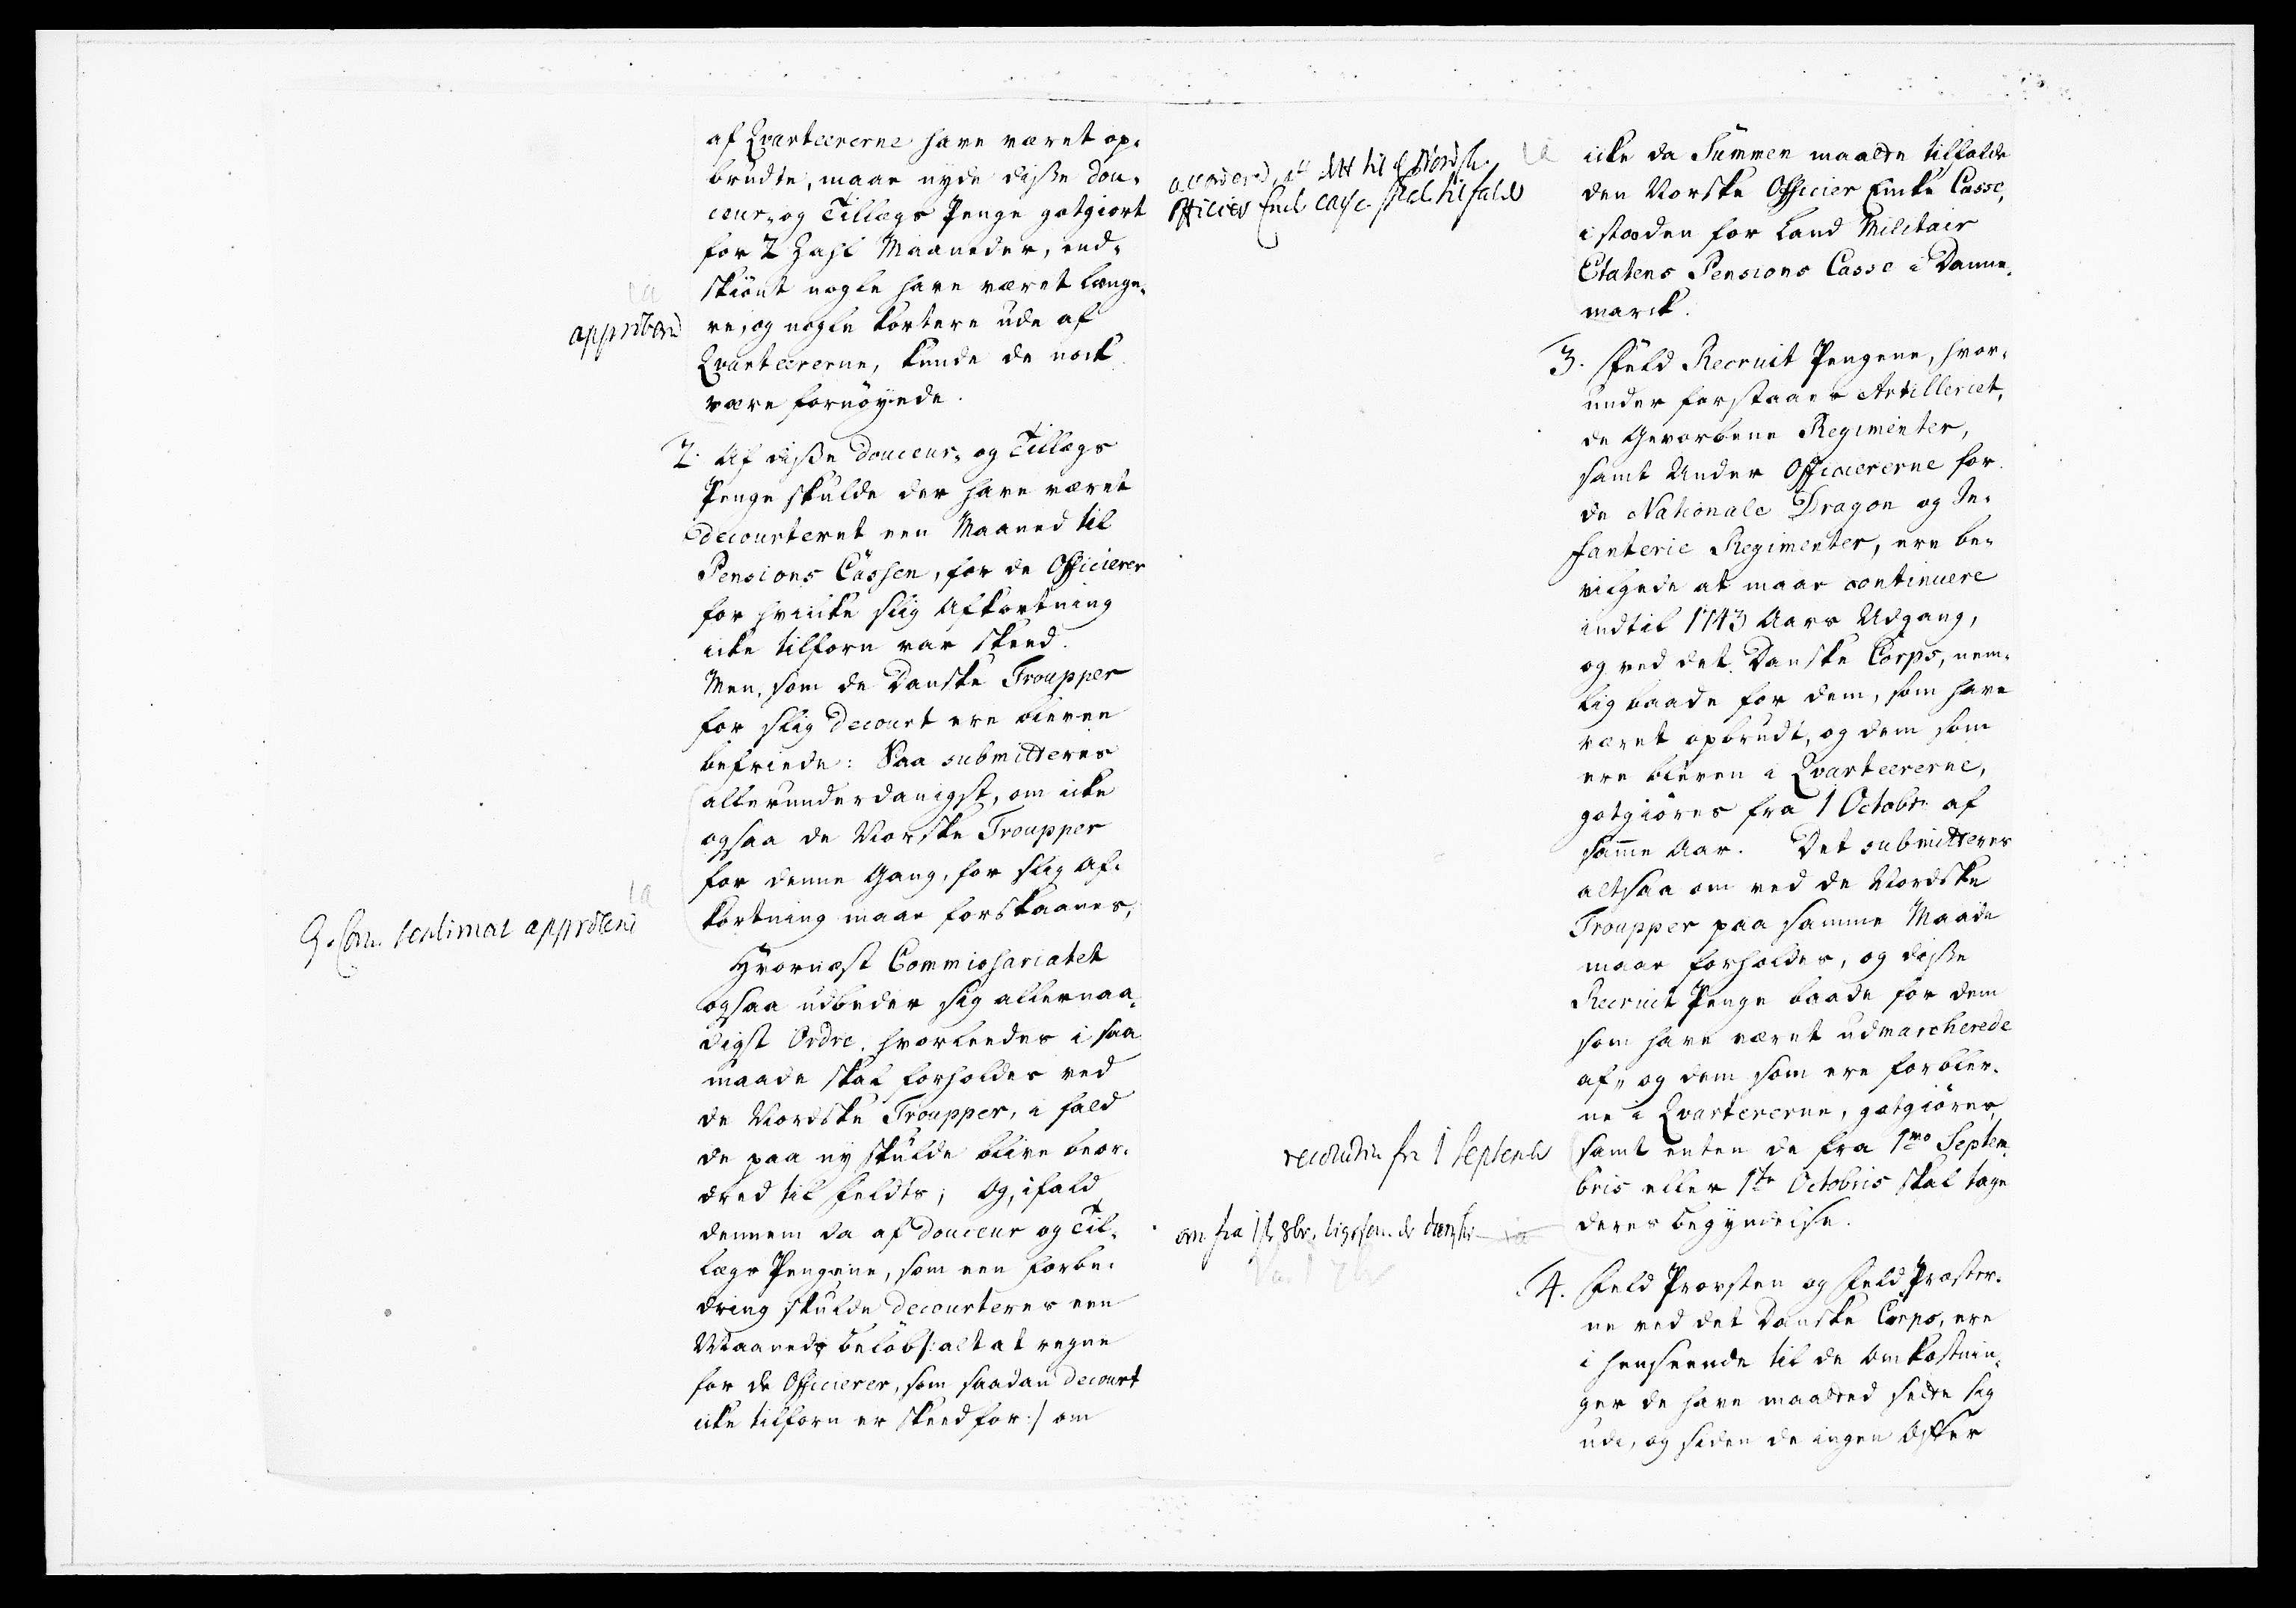 af Qvarteererne have været op-
brudte, maae nyde disse dou-
ceur- og Tillægs Penge gotgiort
for 2 Zahl Maaneder, end-
skiønt nogle have været længe-
re, og nogle kortere ude af
Qvarteererne, kunde de nock
være fornøyede.
ia
approberet
2. Af disse Douceur- og Tillægs
Penge skulde der have været
decourteret een Maaned til
Pensions Cassen, for de Officierer
for hvilcke slig Afkortning
icke tilforn var skeed.
Men, som de Danske Troupper
for slig decourt ere blevne
befriede: Saa submitteres
allerunderdanigst, om icke
ogsaa de Norske Troupper
for denne Gang, for slig af-
kortning maae forskaanes;
ia
G. Com. sentiment approberet
Hvornæst Commissariatet
ogsaa udbeder sig allernaa-
digst Ordre, hvorleedes i saa
maade skal forholdes ved
de Nordske Troupper, i fald
de paa ny skulde blive beor-
dred til feldts; Og, ifald
dennem da af douceur og Til-
lægs Pengene, som een forbe-
dring skulde decourteres een
Maaneds beløb /: alt at regne
for de Officierer, som saadan decourt
icke tilforn er skeed for :/ om
icke da Summen maatte tilfalde
den Norske Officier Encke Casse,
i stæden for Land Militair
Etatens Pensions Casse i Danne-
marck.
ia
accorderes, at dette til d Nordske
Officier Enck casse skal tilfalde
3. Feld Recruit Pengene, hvor-
under forstaaer Artilleriet,
de Gevorbene Regimenter,
samt Under Officiererne for
de Nationale Dragon og In-
fanterie Regimenter, ere be-
vilgede at maae continuere
indtil 1743 Aars Udgang,
og ved det Danske Corps, nem-
lig baade for dem, som have
været opbrudt, og dem som
ere bleven i Qvarteererne,
gotgiøres fra 1 Octobr. af
samme Aar. Det submitteres
altsaa om ved de Nordske
Troupper paa samme Maade
maae forholdes, og disse
Recruit Penge baade for dem
som have været udmarcherede
af, og dem som ere forblev-
ne i Qvartererne, gotgiøres,
samt enten de fra 1mo Septem-
bris eller 1te Octobris skal tage
deres begyndelse.
fra 1 Septembr
om fra 1ste 8br, ligesom de danske
ia
4. Feld Provsten og Feld Præster-
ne ved det Danske Corps, ere
i henseende til de Omkostnin-
ger de have maatted sette sig
udi, og siden de ingen Offer